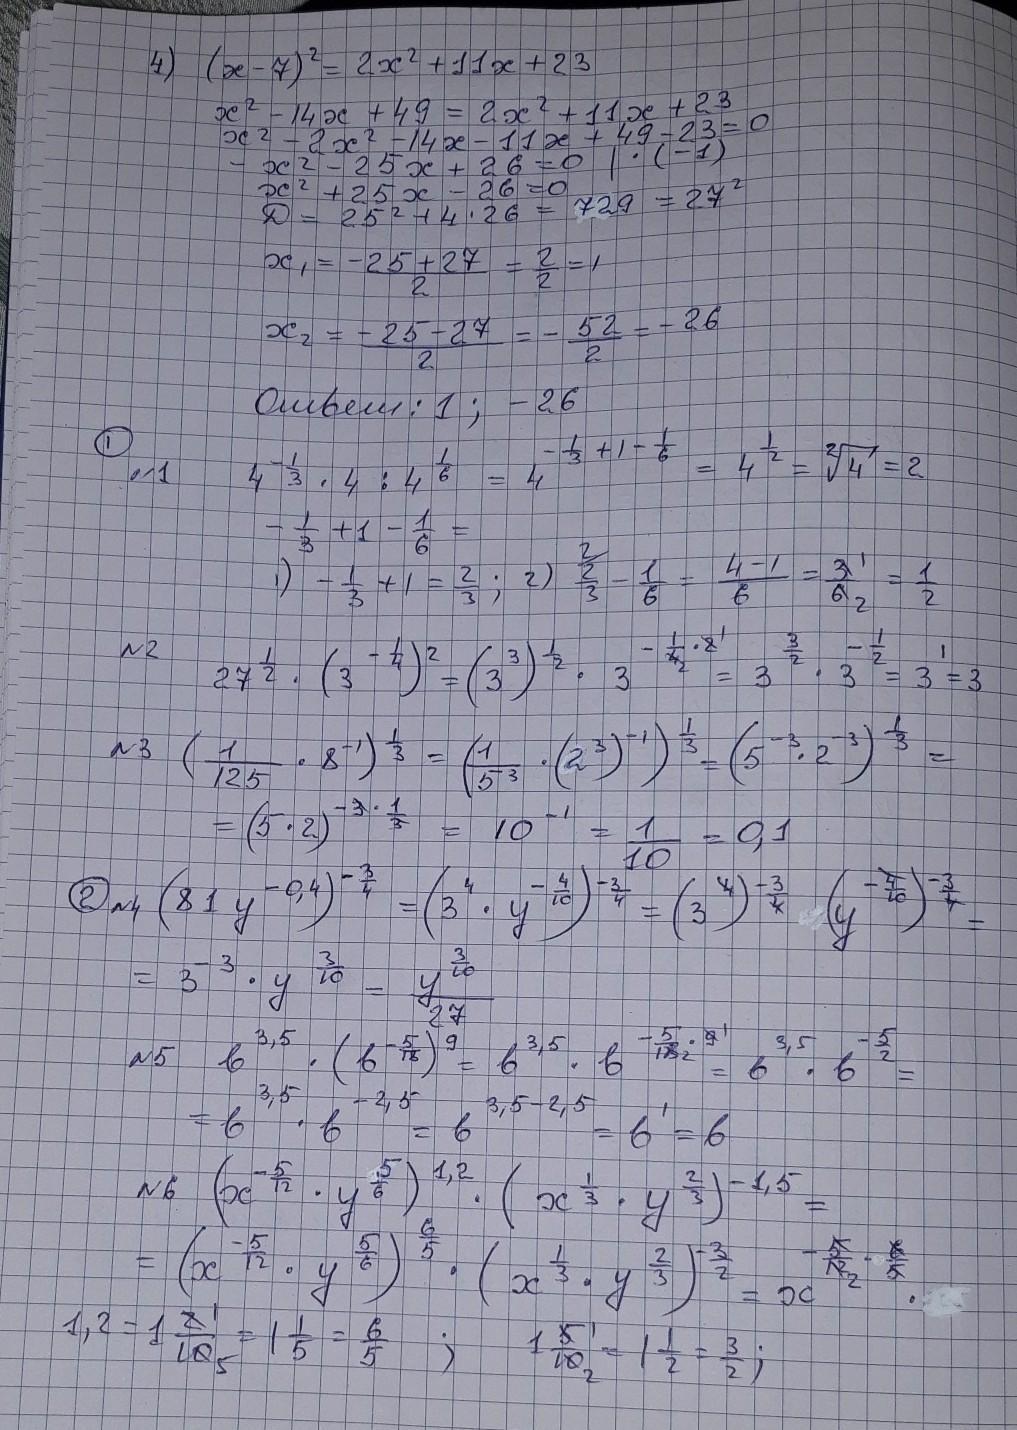 4) (x-7)² = 2x² + 11x + 23
x² - 14x + 49 = 2x² + 11x + 23
x² - 2x² - 14x - 11x + 49 - 23 = 0
- x² - 25x + 26 = 0 | · (-1)
x² + 25x - 26 = 0
D = 25² + 4 · 26 = 729 = 27²
x₁ = (-25+27)/2 = 2/2 = 1
x₂ = (-25-27)/2 = - 52/2 = -26
Ответ: 1; -26
① №1 4^(-1/3) · 4 : 4^(1/6) = 4^(-1/3 + 1 - 1/6) = 4^(1/2) = ²√4 = 2
- 1/3 + 1 - 1/6 =
1) - 1/3 + 1 = 2/3; 2) 2/3 - 1/6 = (4-1)/6 = 3/6 = 1/2
№2 27^(1/2) · (3^(-1/4))² = (3³)^(1/2) · 3^(-1/4 · 2) = 3^(3/2) · 3^(-1/2) = 3¹ = 3
№3 (1/125 · 8⁻¹)^(1/3) = (1/5³ · (2³)⁻¹)^(1/3) = (5⁻³ · 2⁻³)^(1/3) =
= (5 · 2)^(-3 · 1/3) = 10⁻¹ = 1/10 = 0,1
② №4 (81 y^(-0,4))^(-3/4) = (3⁴ · y^(-4/10))^(-3/4) = (3⁴)^(-3/4) (y^(-4/10))^(-3/4) =
= 3⁻³ · y^(3/10) = y^(3/10)/27
№5 b^(3,5) · (b^(-5/18))⁹ = b^(3,5) · b^(-5/18 · 9) = b^(3,5) · b^(-5/2) =
= b^(3,5) · b^(-2,5) = b^(3,5-2,5) = b¹ = b
№6 (x^(-5/12) · y^(5/6))^(1,2) · (x^(1/3) · y^(2/3))^(-1,5) =
= (x^(-5/12) · y^(5/6))^(6/5) · (x^(1/3) · y^(2/3))^(-3/2) = x^(-5/12 · 6/5) ·
1,2 = 1 2/10 = 1 1/5 = 6/5 ; 1 5/10 = 1 1/2 = 3/2;